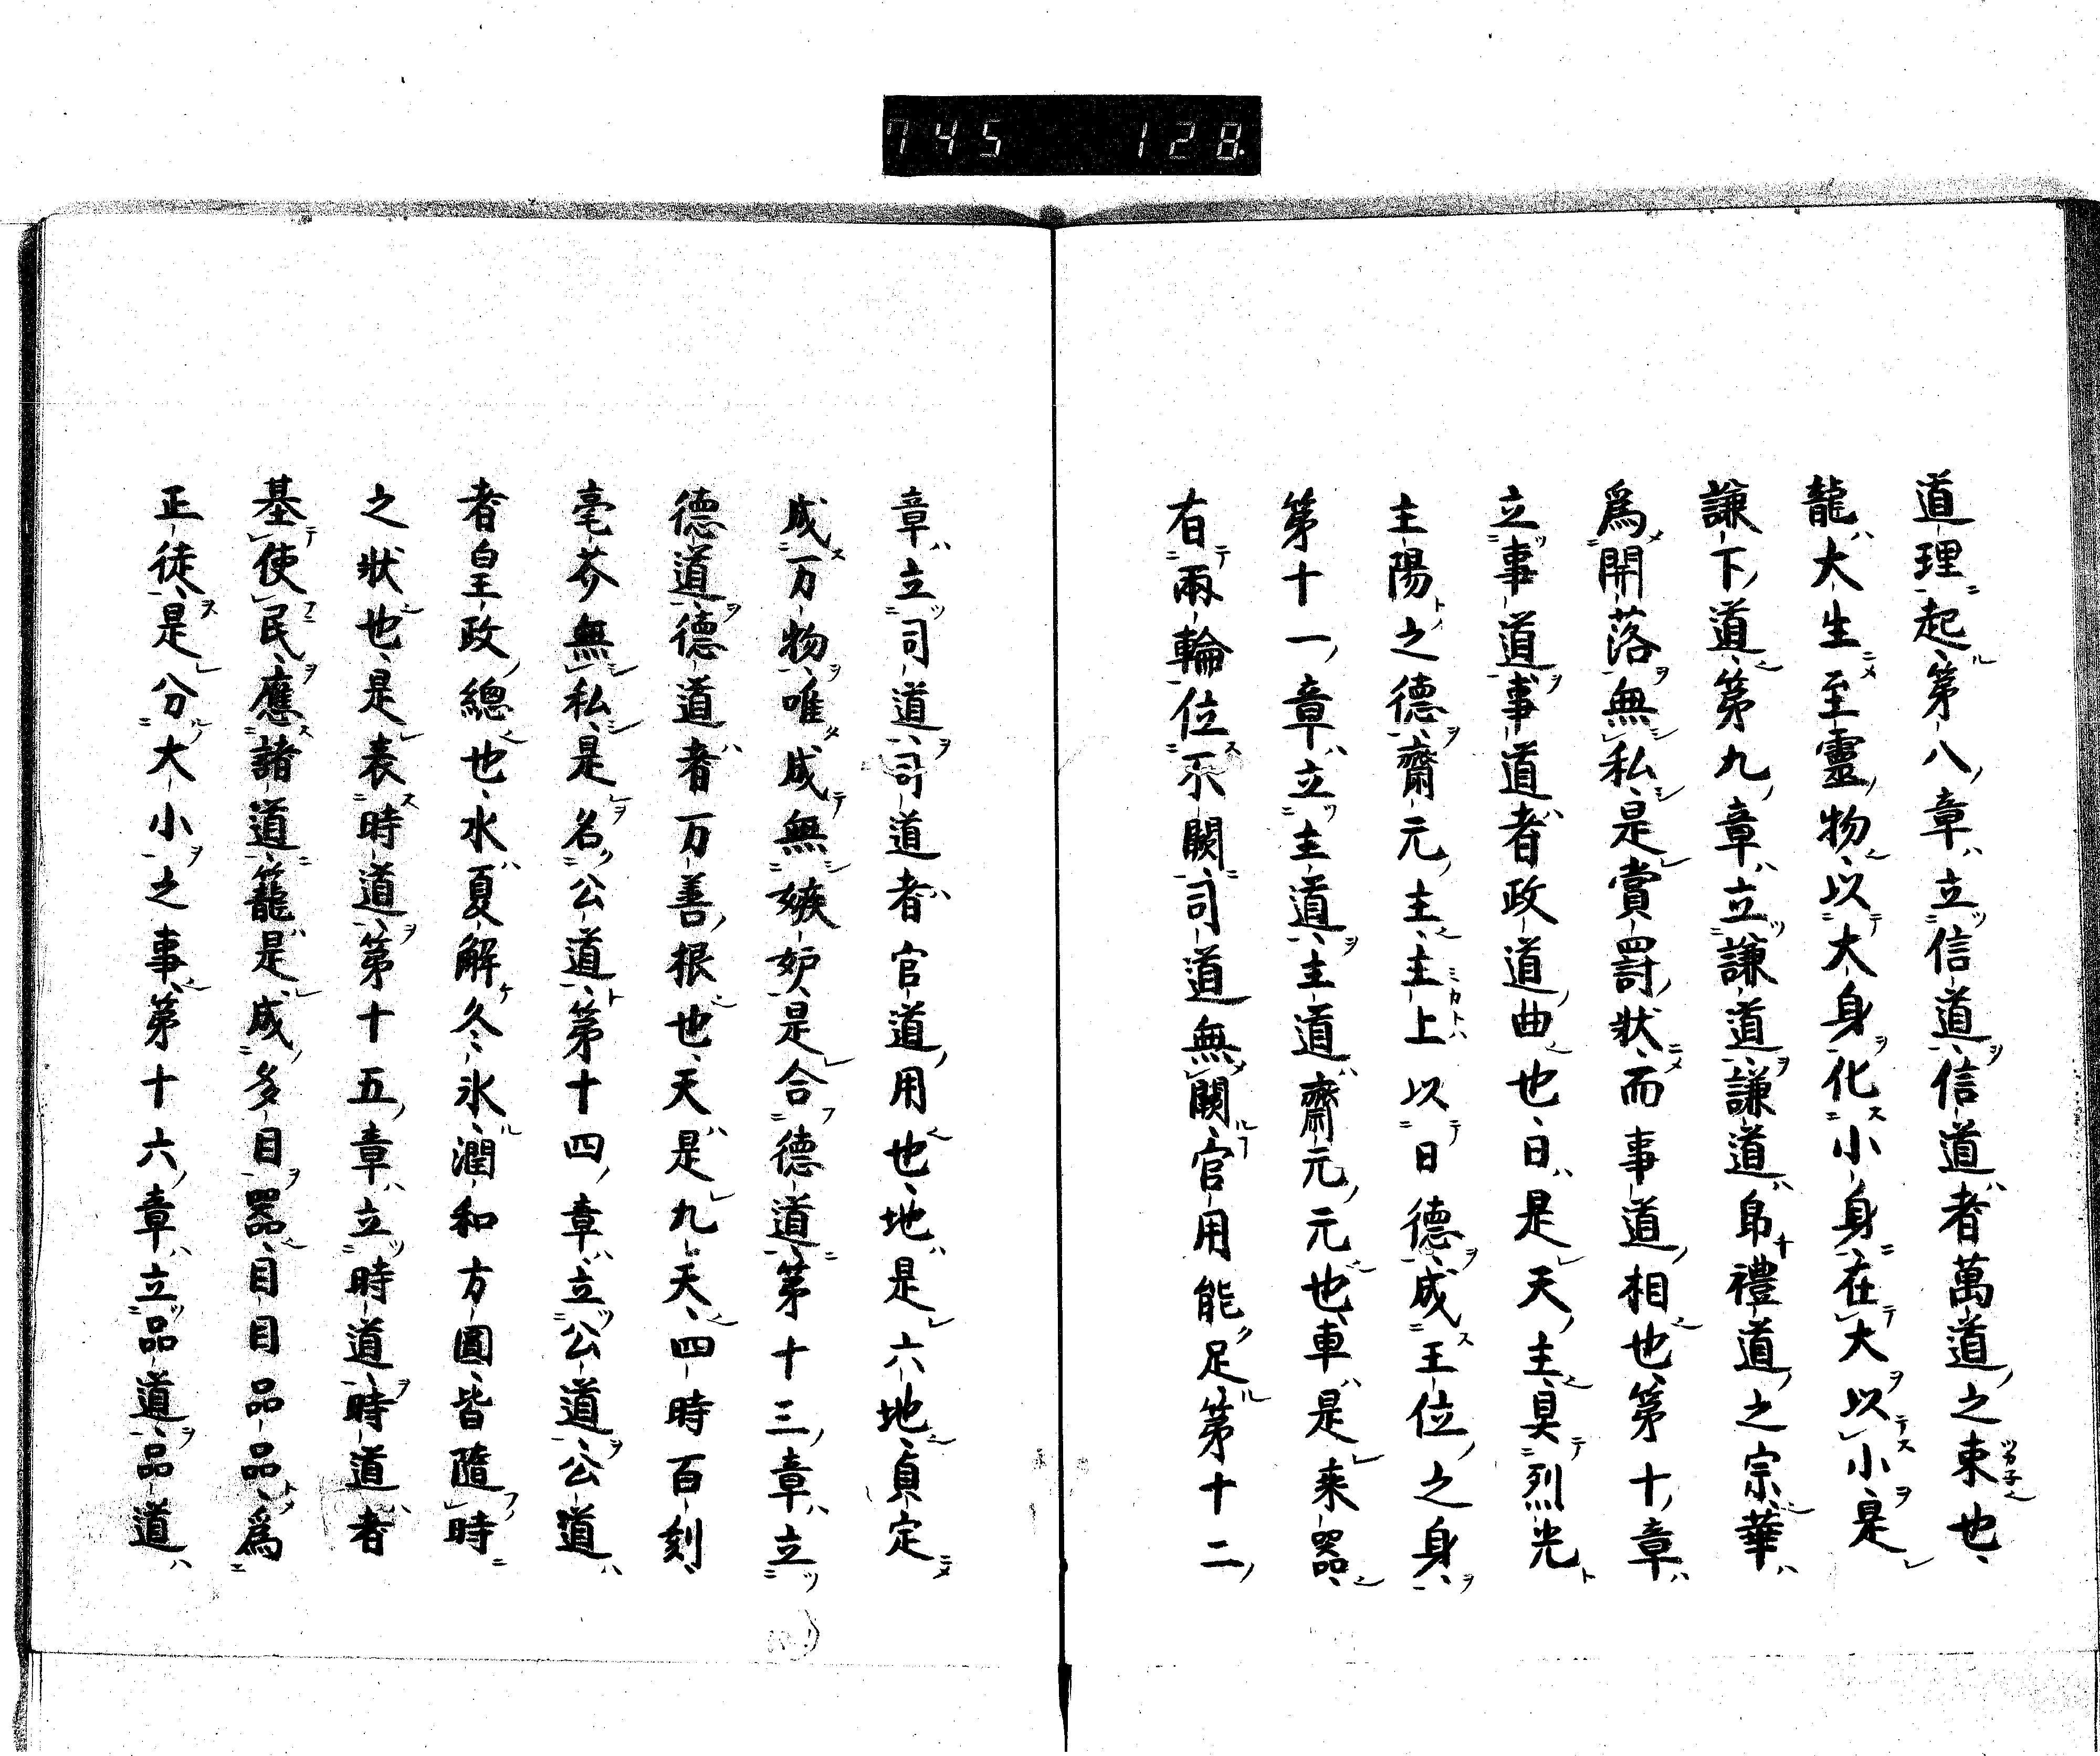 745 128
道理起第八章立信道信道者萬道之束也
龍大生至靈物以大身化小身在大以小是
謙下道第九章立謙道謙道帛禮道之宗華
爲開落無私是賞罸状而事道相也第十章
立事道事道者政道曲也日是天主具烈光
主陽之德齋元主主上以日德成王位之身
第十一章立主道主道齋元元也車是来器
右兩輪位不闕司道無闕官用能足第十二
章立司道司道者官道用也地是六地貞定
成万物唯成無嫉妒是合德道第十三章立
德道德道者万善根也天是九天四時百刻
毫芥無私是名公道第十四章立公道公道
者皇政總也水夏解久氷潤和方圓皆隨時
之狀也是表時道第十五章立時道時道者
基使民應諸道籠是成多目器目目品品爲
正徒是分大小之事第十六章立品道品道